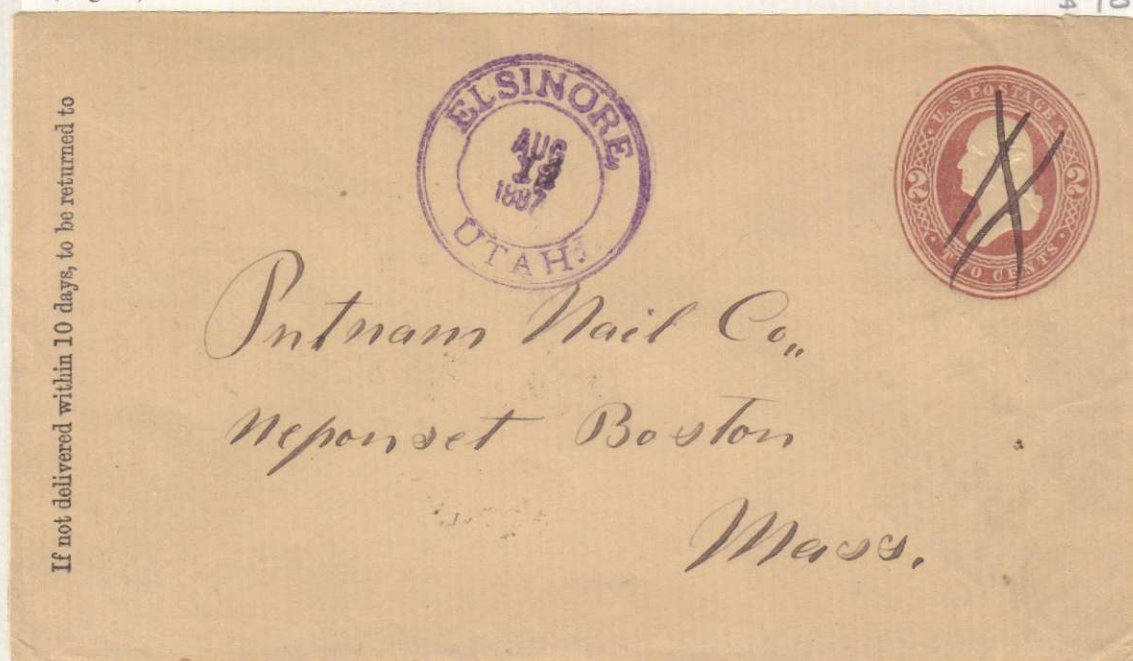 If not delivered within 10 days, to be returned to
ELSINORE,
AUG
1887
UTAH.
U.S. POSTAGE
2 2
TWO CENTS
Putnam Nail Co,,
Neponset Boston
Mass.